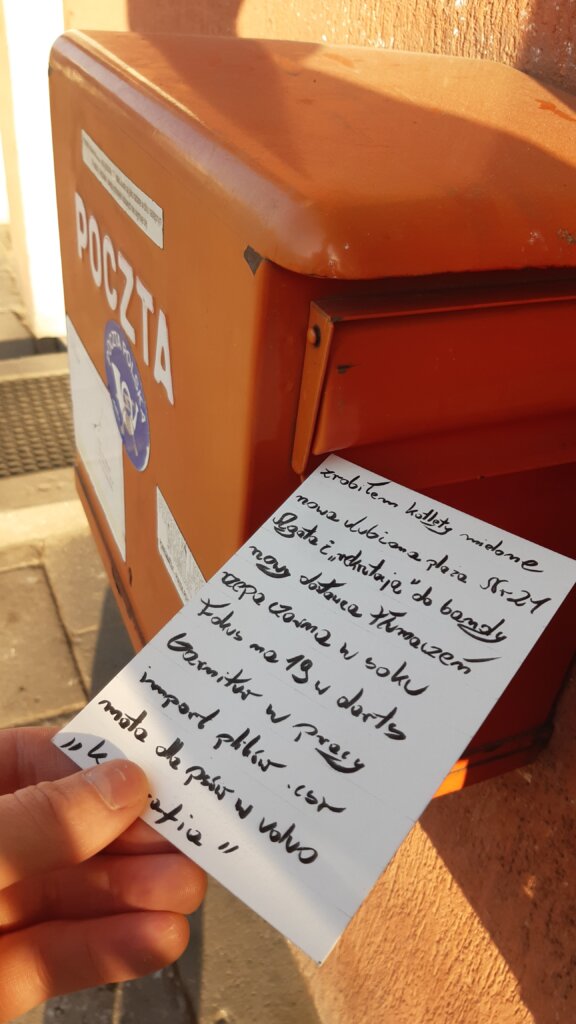 POCZTA
POCZTA POLSKA
zrobiłem kotlety mielone
nowa ulubiona plaża Nr 21
"rekrutują" do bandy
nowy dostawca tłumaczeń
rzepa czarna w soku
fokus na 19 w darts
Garnitur w pracy
import plików .csv
mata dla psów w volvo